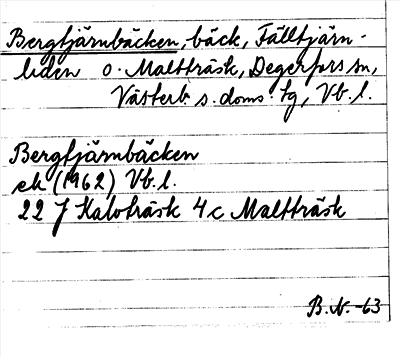 Bergtjärnbäcken, bäck, Fälltjärn-
liden o. Maltträsk, Degerfors sn,
Västerb. s. doms. tg, Vb. l.
Bergtjärnbäcken
ek (1962) Vb. l.
22 J Kalvträsk 4 c Maltträsk
B.N. -63